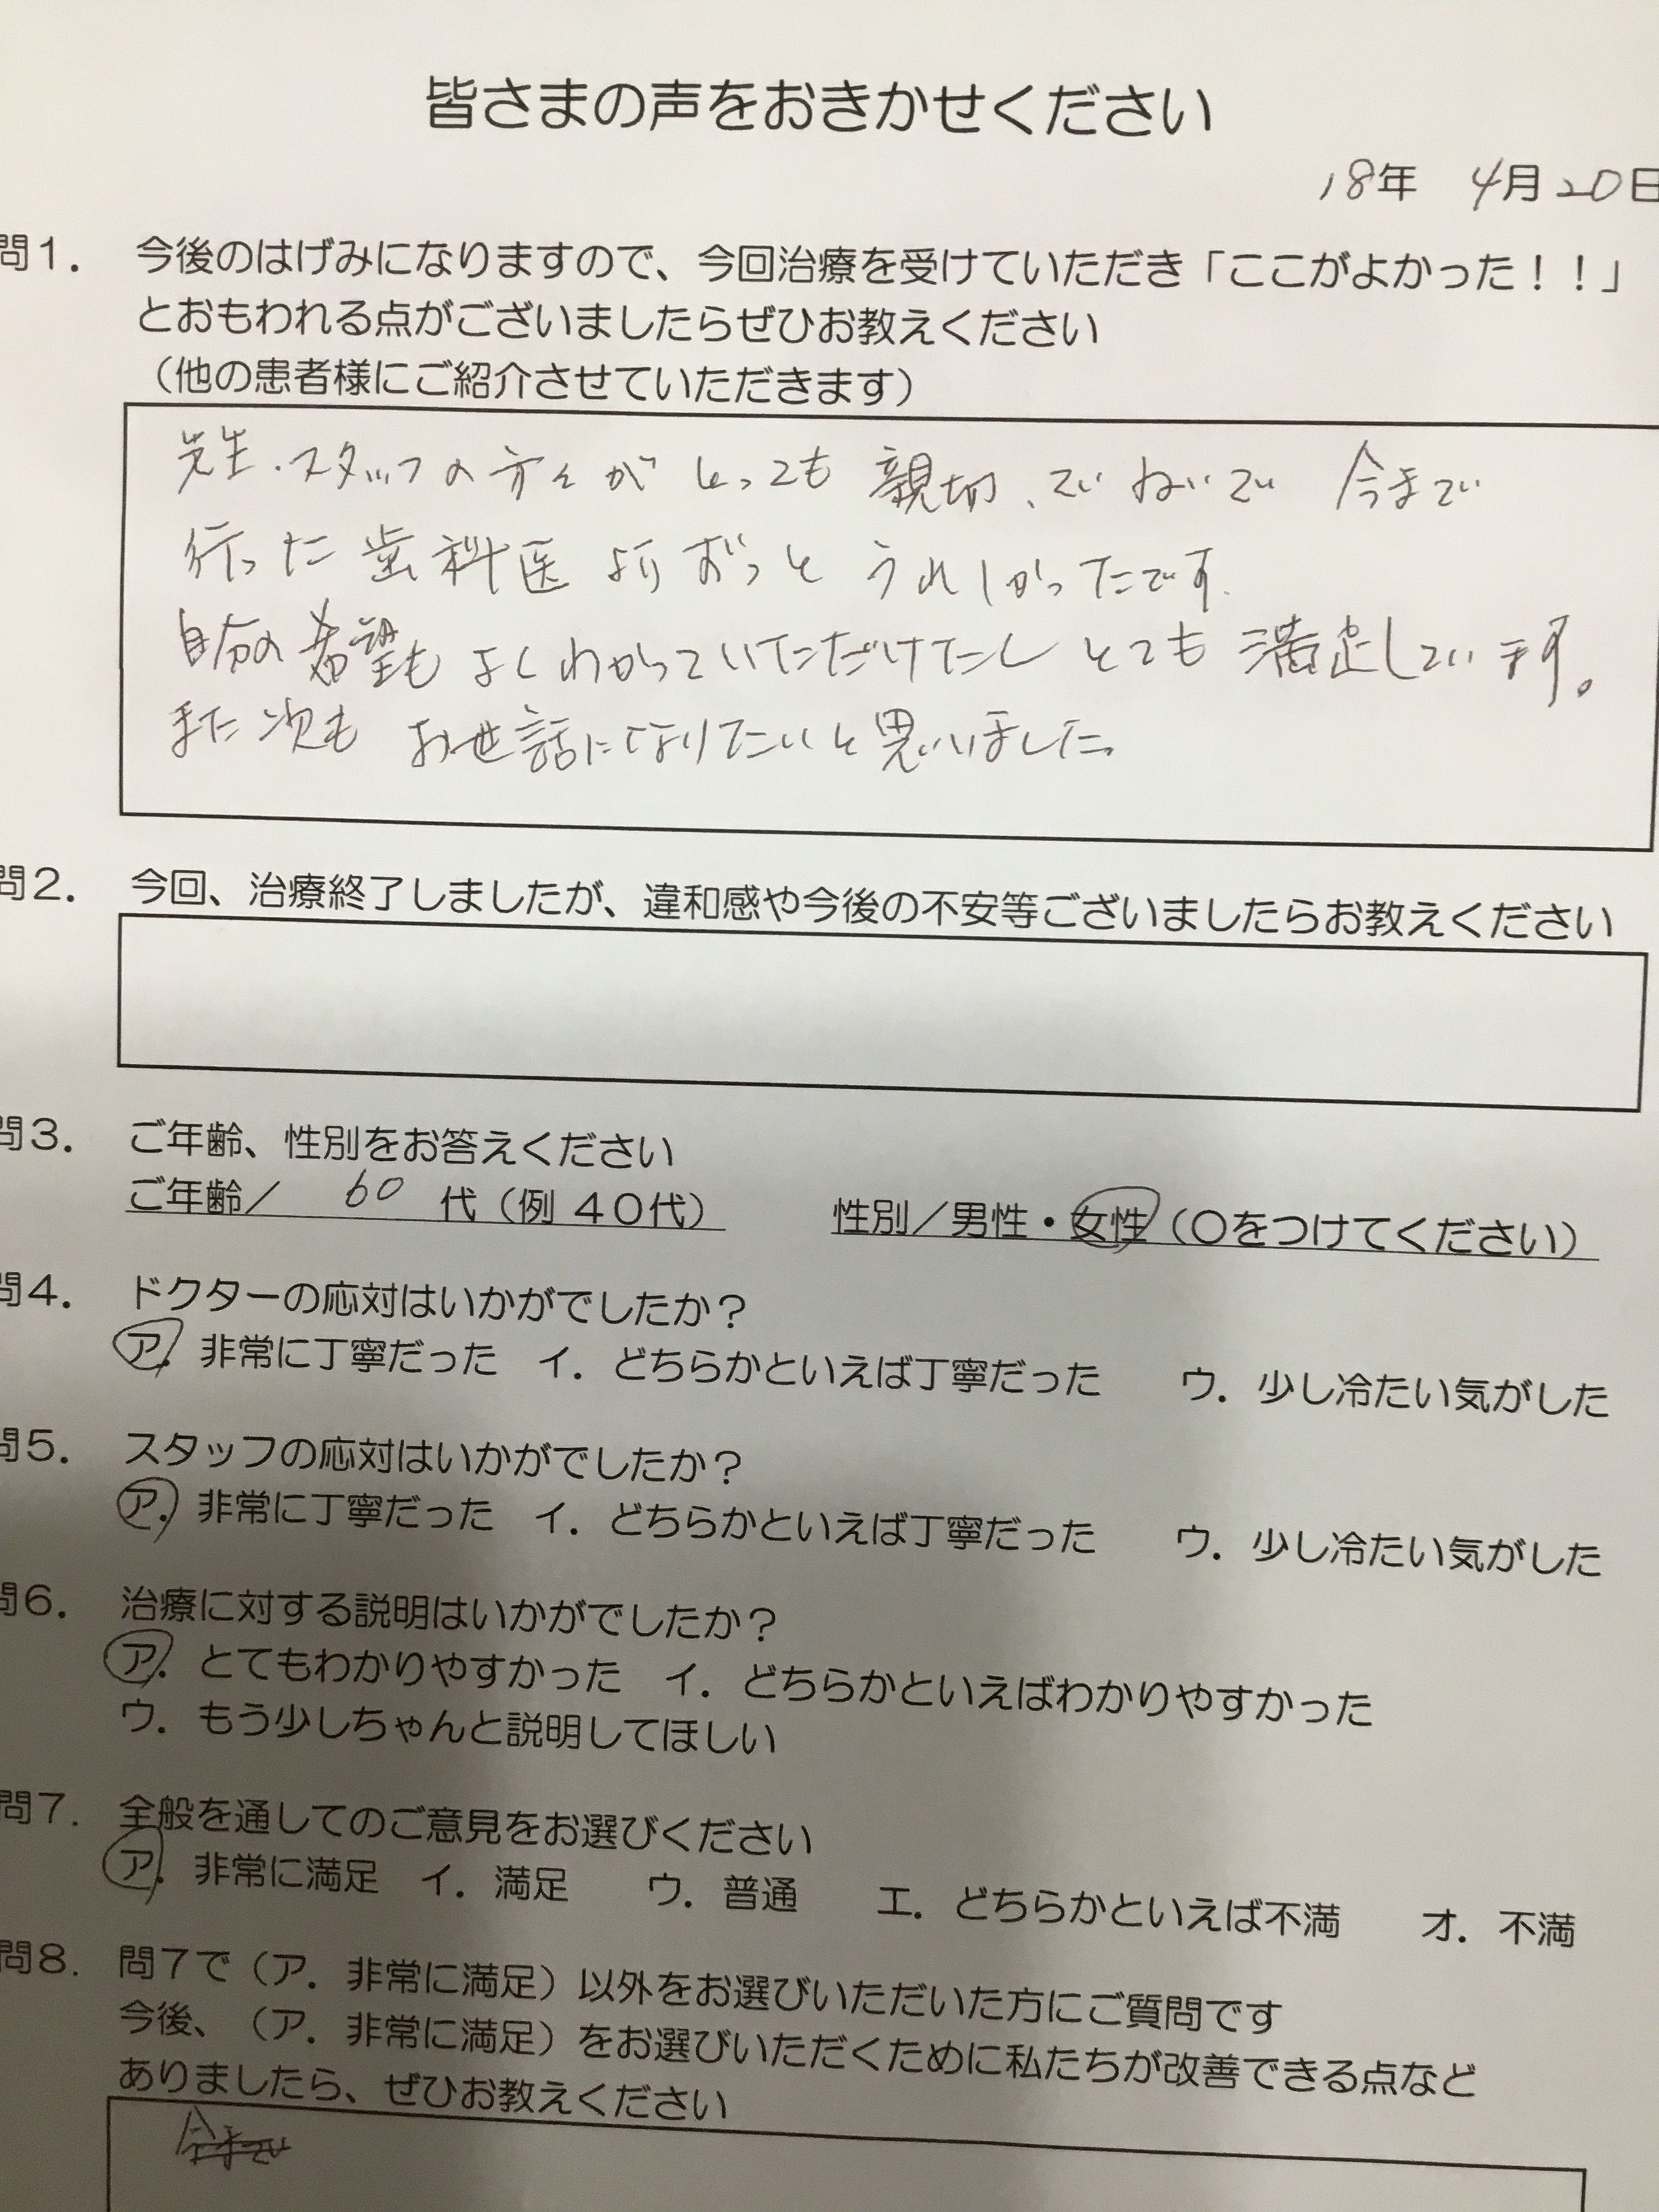 皆さまの声をおきかせください
18年 4月20日
問1. 今後のはげみになりますので、今回治療を受けていただき「ここがよかった!!」
とおもわれる点がございましたらぜひお教えください
(他の患者様にご紹介させていただきます)
先生・スタッフの方々がとっても親切、ていねいで 今まで
行った歯科医よりずっとうれしかったです.
自分の希望もよくわかっていただけたしとても満足しています。
また次もお世話になりたいと思いました。
問2. 今回、治療終了しましたが、違和感や今後の不安等ございましたらお教えください
問3. ご年齢、性別をお答えください
ご年齢/ 60 代(例 40代) 性別/男性・女性(○をつけてください)
問4. ドクターの応対はいかがでしたか?
ア. 非常に丁寧だった イ. どちらかといえば丁寧だった ウ. 少し冷たい気がした
問5. スタッフの応対はいかがでしたか?
ア. 非常に丁寧だった イ. どちらかといえば丁寧だった ウ. 少し冷たい気がした
問6. 治療に対する説明はいかがでしたか?
ア. とてもわかりやすかった イ. どちらかといえばわかりやすかった
ウ. もう少しちゃんと説明してほしい
問7. 全般を通してのご意見をお選びください
ア. 非常に満足 イ. 満足 ウ. 普通 エ. どちらかといえば不満 オ. 不満
問8. 問7で(ア. 非常に満足)以外をお選びいただいた方にご質問です
今後、(ア. 非常に満足)をお選びいただくために私たちが改善できる点など
ありましたら、ぜひお教えください
今まで